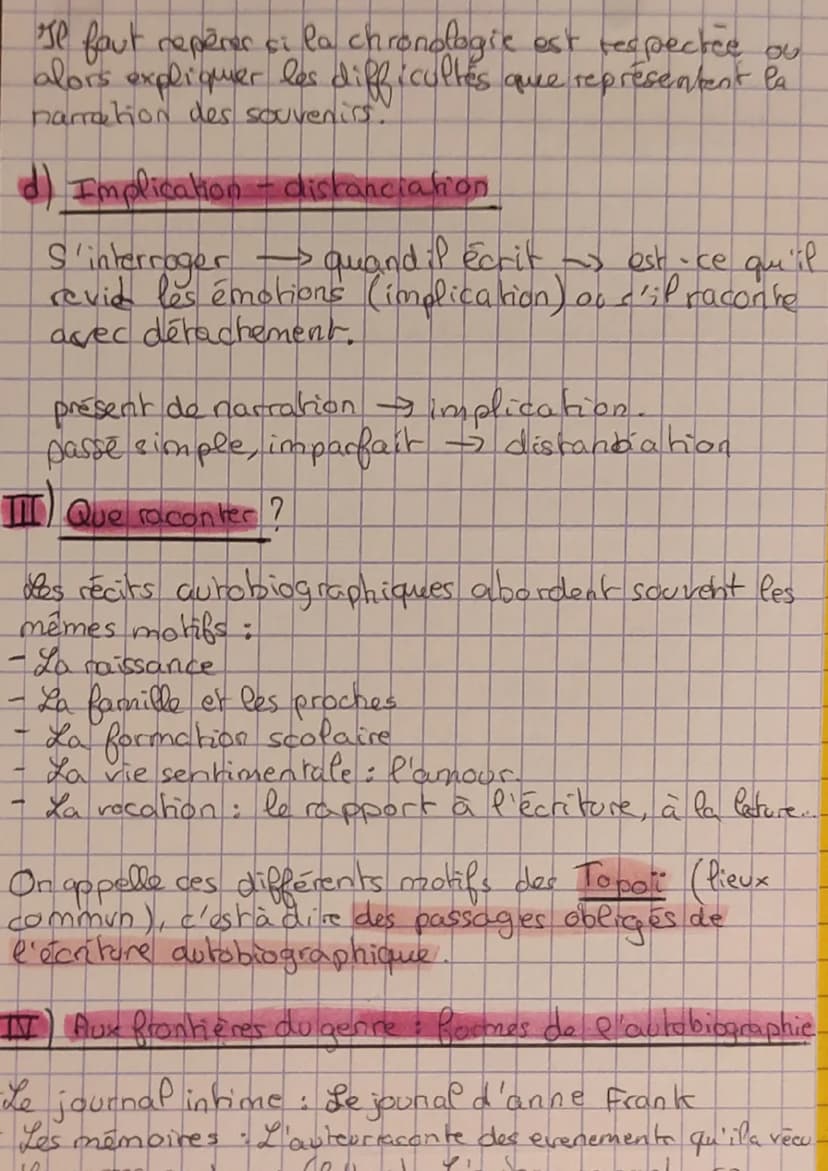 Il faut repérer si la chronologie est respectée ou
alors expliquer les difficultés que représentent la
narration des souvenirs.
d) Implication - distanciation
S'interroger → quand il écrit → est-ce qu'il
revid les émotions (implication) ou s'il raconte
avec détachement.
présent de narration → implication.
passé simple, imparfait → distanciation
III) Que raconter ?
Les récits autobiographiques abordent souvent les
mêmes motifs :
- La naissance
- La famille et les proches
- La formation scolaire
- La vie sentimentale : l'amour.
- La vocation : le rapport à l'écriture, à la lecture...
On appelle ces différents motifs des Topoï (lieux
commun), c'est à dire des passages obligés de
l'écriture autobiographique.
IV) Aux frontières du genre : formes de l'autobiographie
Le journal intime : Le jounal d'anne Frank
Les mémoires : L'auteur raconte des evenements qu'il a vécu